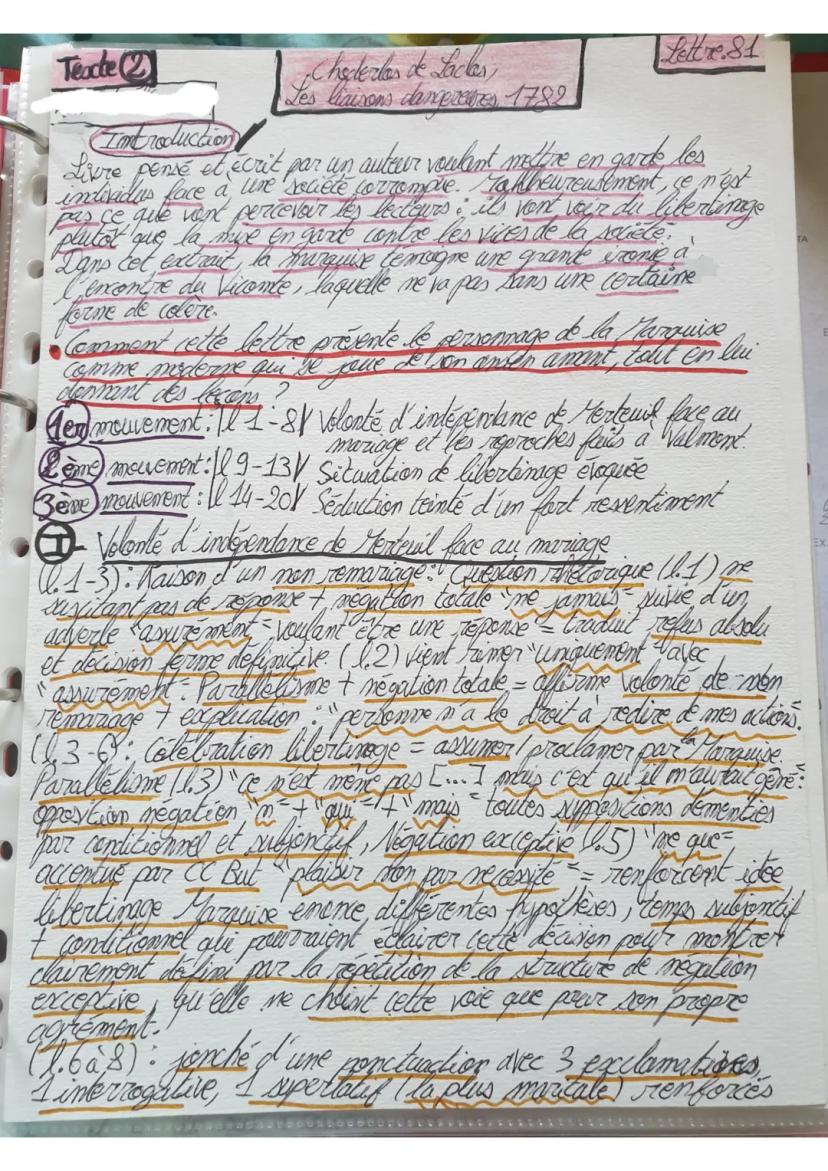 Texte 2
Choderlos de Laclos,
Les liaisons dangereuses 1782
Lettre.81
Introduction
Livre pensé et écrit par un auteur voulant mettre en garde les
individus face à une société corrompue. Malheureusement, ce n'est
pas ce que vont percevoir les lecteurs : ils vont voir du libertinage
plutôt que la mise en garde contre les vices de la société.
Dans cet extrait, la marquise témoigne une grande ironie à
l'encontre du Vicomte, laquelle ne va pas sans une certaine
forme de colère.
• Comment cette lettre présente le personnage de la Marquise
comme moderne qui se joue de son ancien amant, tout en lui
donnant des leçons ?
1er mouvement : l 1-8 Volonté d'indépendance de Merteuil face au
mariage et les reproches faits à Valmont.
2ème mouvement : l 9-13 Situation de libertinage évoquée
3ème mouvement : l 14-20 Séduction teinté d'un fort ressentiment
I - Volonté d'indépendance de Merteuil face au mariage
(l.1-3) : Raison d'un non remariage : Question rhétorique (l.1) ne
suscitant pas de réponse + négation totale "ne jamais" suivie d'un
adverbe "assurément" voulant être une réponse = traduit refus absolu
et décision ferme définitive. (l.2) vient rimer "uniquement" avec
"assurément". Parallélisme + négation totale = affirme volonté de non
remariage + explication : "personne n'a le droit à redire de mes actions.
(l.3-6) : Célébration libertinage = assumer/proclamer par la Marquise
Parallélisme (l.3) "ce n'est même pas [...] mais c'est qu'il m'aurait gêné" :
opposition négation "n" + "qui" / + "mais" toutes suppositions démenties
par conditionnel et subjonctif, Négation exceptive (l.5) "ne que"
accentué par CC But "plaisir non par nécessité" = renforcent idée
libertinage Marquise énonce, différentes hypothèses, temps subjonctif
+ conditionnel qui pourraient éclairer cette décision pour montrer
clairement défini par la répétition de la structure de négation
exceptive, qu'elle ne choisit cette voie que pour son propre
agrément.
(l.6 à 8) : jonché d'une ponctuation avec 3 exclamatives,
1 interrogative, 1 superlatif (la plus maritale) renforcés